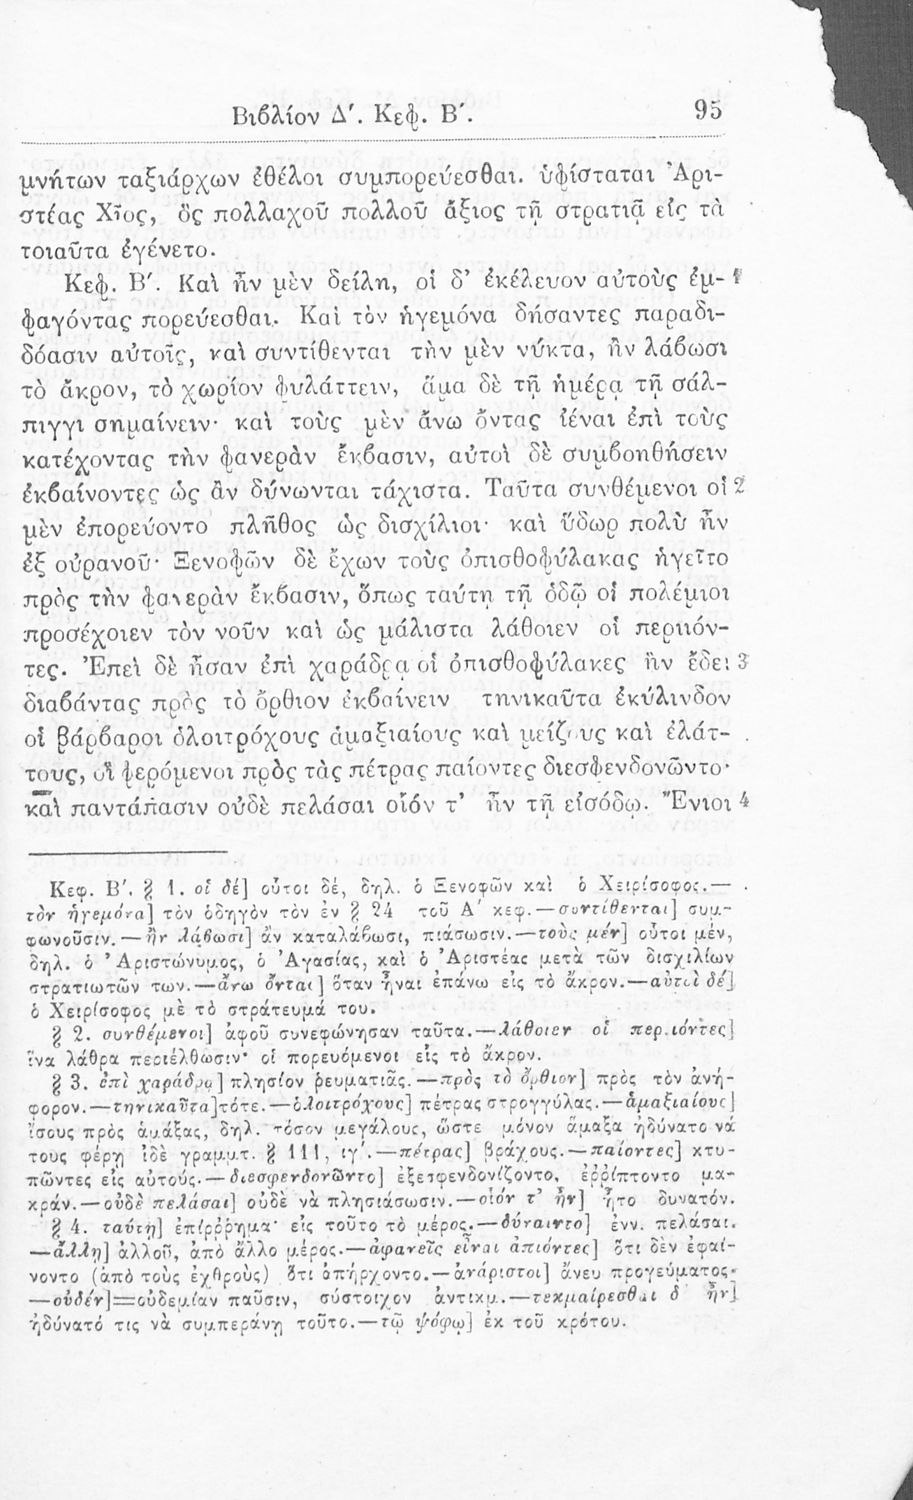 Βιβλίον Δʹ. Κεφ. Βʹ. 95
μνήτων ταξιάρχων ἐθέλοι συμπορεύεσθαι. ὑφίσταται Ἀρι-
στέας Χῖος, ὃς πολλαχοῦ πολλοῦ ἄξιος τῇ στρατιᾷ εἰς τὰ
τοιαῦτα ἐγένετο.
Κεφ. Βʹ. Καὶ ἦν μὲν δείλη, οἱ δ’ ἐκέλευον αὐτοὺς ἐμ- 1
φαγόντας πορεύεσθαι. Καὶ τὸν ἡγεμόνα δήσαντες παραδι-
δόασιν αὐτοῖς, καὶ συντίθενται τὴν μὲν νύκτα, ἢν λάβωσι
τὸ ἄκρον, τὸ χωρίον φυλάττειν, ἅμα δὲ τῇ ἡμέρᾳ τῇ σάλ-
πιγγι σημαίνειν· καὶ τοὺς μὲν ἄνω ὄντας ἰέναι ἐπὶ τοὺς
κατέχοντας τὴν φανερὰν ἔκβασιν, αὐτοὶ δὲ συμβοηθήσειν
ἐκβαίνοντες ὡς ἂν δύνωνται τάχιστα. Ταῦτα συνθέμενοι οἱ 2
μὲν ἐπορεύοντο πλῆθος ὡς δισχίλιοι· καὶ ὕδωρ πολὺ ἦν
ἐξ οὐρανοῦ· Ξενοφῶν δὲ ἔχων τοὺς ὀπισθοφύλακας ἡγεῖτο
πρὸς τὴν φανερὰν ἔκβασιν, ὅπως ταύτῃ τῇ ὁδῷ οἱ πολέμιοι
προσέχοιεν τὸν νοῦν καὶ ὡς μάλιστα λάθοιεν οἱ περιιόν-
τες. Ἐπεὶ δὲ ἦσαν ἐπὶ χαράδρᾳ οἱ ὀπισθοφύλακες ἣν ἔδει 3
διαβάντας πρὸς τὸ ὄρθιον ἐκβαίνειν τηνικαῦτα ἐκύλινδον
οἱ βάρβαροι ὁλοιτρόχους ἁμαξιαίους καὶ μείζους καὶ ἐλάτ-
τους, οἳ φερόμενοι πρὸς τὰς πέτρας παίοντες διεσφενδονῶντο·
καὶ παντάπασιν οὐδὲ πελάσαι οἷόν τ’ ἦν τῇ εἰσόδῳ. Ἔνιοι 4
Κεφ. Βʹ. § 1. οἱ δὲ] οὗτοι δέ, δηλ. ὁ Ξενοφῶν καὶ ὁ Χειρίσοφος.—
τὸν ἡγεμόνα] τὸν ὁδηγὸν τὸν ἐν § 24 τοῦ Αʹ κεφ.—συντίθενται] συμ-
φωνοῦσιν.—ἢν λάβωσι] ἂν καταλάβωσι, πιάσωσιν.—τοὺς μὲν] οὗτοι μέν,
δηλ. ὁ Ἀριστώνυμος, ὁ Ἀγασίας, καὶ ὁ Ἀριστέας μετὰ τῶν δισχιλίων
στρατιωτῶν των.—ἄνω ὄνται] ὅταν ἦναι ἐπάνω εἰς τὸ ἄκρον.—αὐτοὶ δέ]
ὁ Χειρίσοφος μὲ τὸ στράτευμά του.
§ 2. συνθέμενοι] ἀφοῦ συνεφώνησαν ταῦτα.—λάθοιεν οἱ περιιόντες]
ἵνα λάθρα περιέλθωσιν· οἱ πορευόμενοι εἰς τὸ ἄκρον.
§ 3. ἐπὶ χαράδρᾳ] πλησίον ῥευματιᾶς.—πρὸς τὸ ὄρθιον] πρὸς τὸν ἀνή-
φορον.—τηνικαῦτα]τότε.—ὁλοιτρόχους] πέτρας στρογγύλας.—ἁμαξιαίους]
ἴσους πρὸς ἁμάξας, δηλ. τόσον μεγάλους, ὥστε μόνον ἅμαξα ἠδύνατο νά
τους φέρῃ ἰδὲ γραμμτ. § 111, ιγʹ.—πέτρας] βράχους.—παίοντες] κτυ-
πῶντες εἰς αὐτούς.—διεσφενδονῶντο] ἐξεσφενδονίζοντο, ἐρρίπτοντο μα-
κράν.—οὐδὲ πελάσαι] οὐδὲ νὰ πλησιάσωσιν.—οἷόν τ’ ἦν] ἦτο δυνατόν.
§ 4. ταύτῃ] ἐπίρρημα· εἰς τοῦτο τὸ μέρος.—δύναιντο] ἐνν. πελάσαι.
—ἄλλῃ] ἀλλοῦ, ἀπὸ ἄλλο μέρος.—ἀφανεῖς εἶναι ἀπιόντες] ὅτι δὲν ἐφαί-
νοντο (ἀπὸ τοὺς ἐχθροὺς) ὅτι ἀπήρχοντο.—ἀνάριστοι] ἄνευ προγεύματος·
—οὐδέν]=οὐδεμίαν παῦσιν, σύστοιχον ἀντικμ.—τεκμαίρεσθαι δ’ ἦν]
ἠδύνατό τις νὰ συμπεράνῃ τοῦτο.—τῷ ψόφῳ] ἐκ τοῦ κρότου.